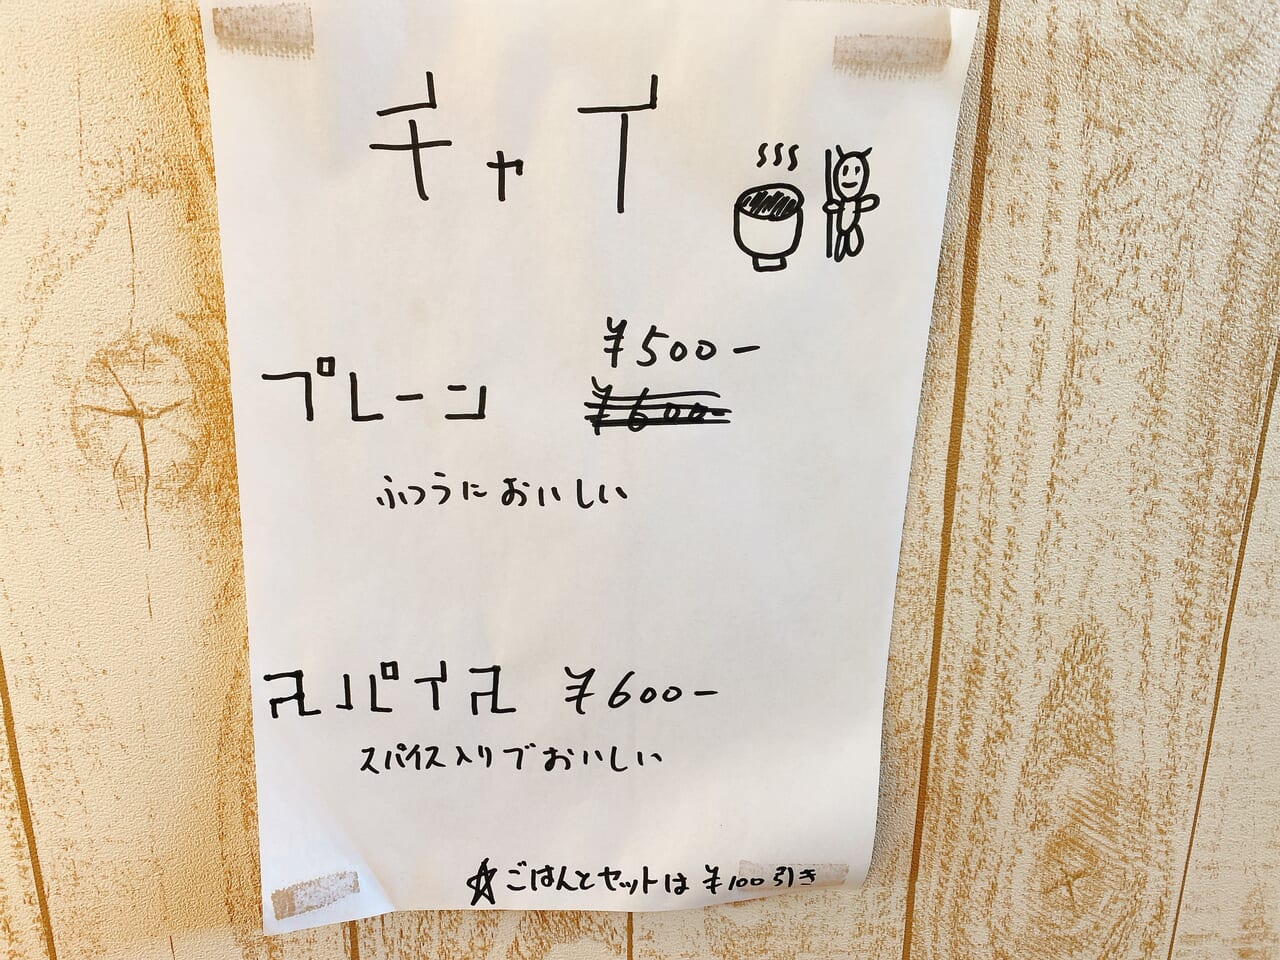 チャイ
¥500-
プレーン ¥600-
ふつうにおいしい
スパイス ¥600-
スパイス入りでおいしい
☆ごはんとセットは ¥100引き